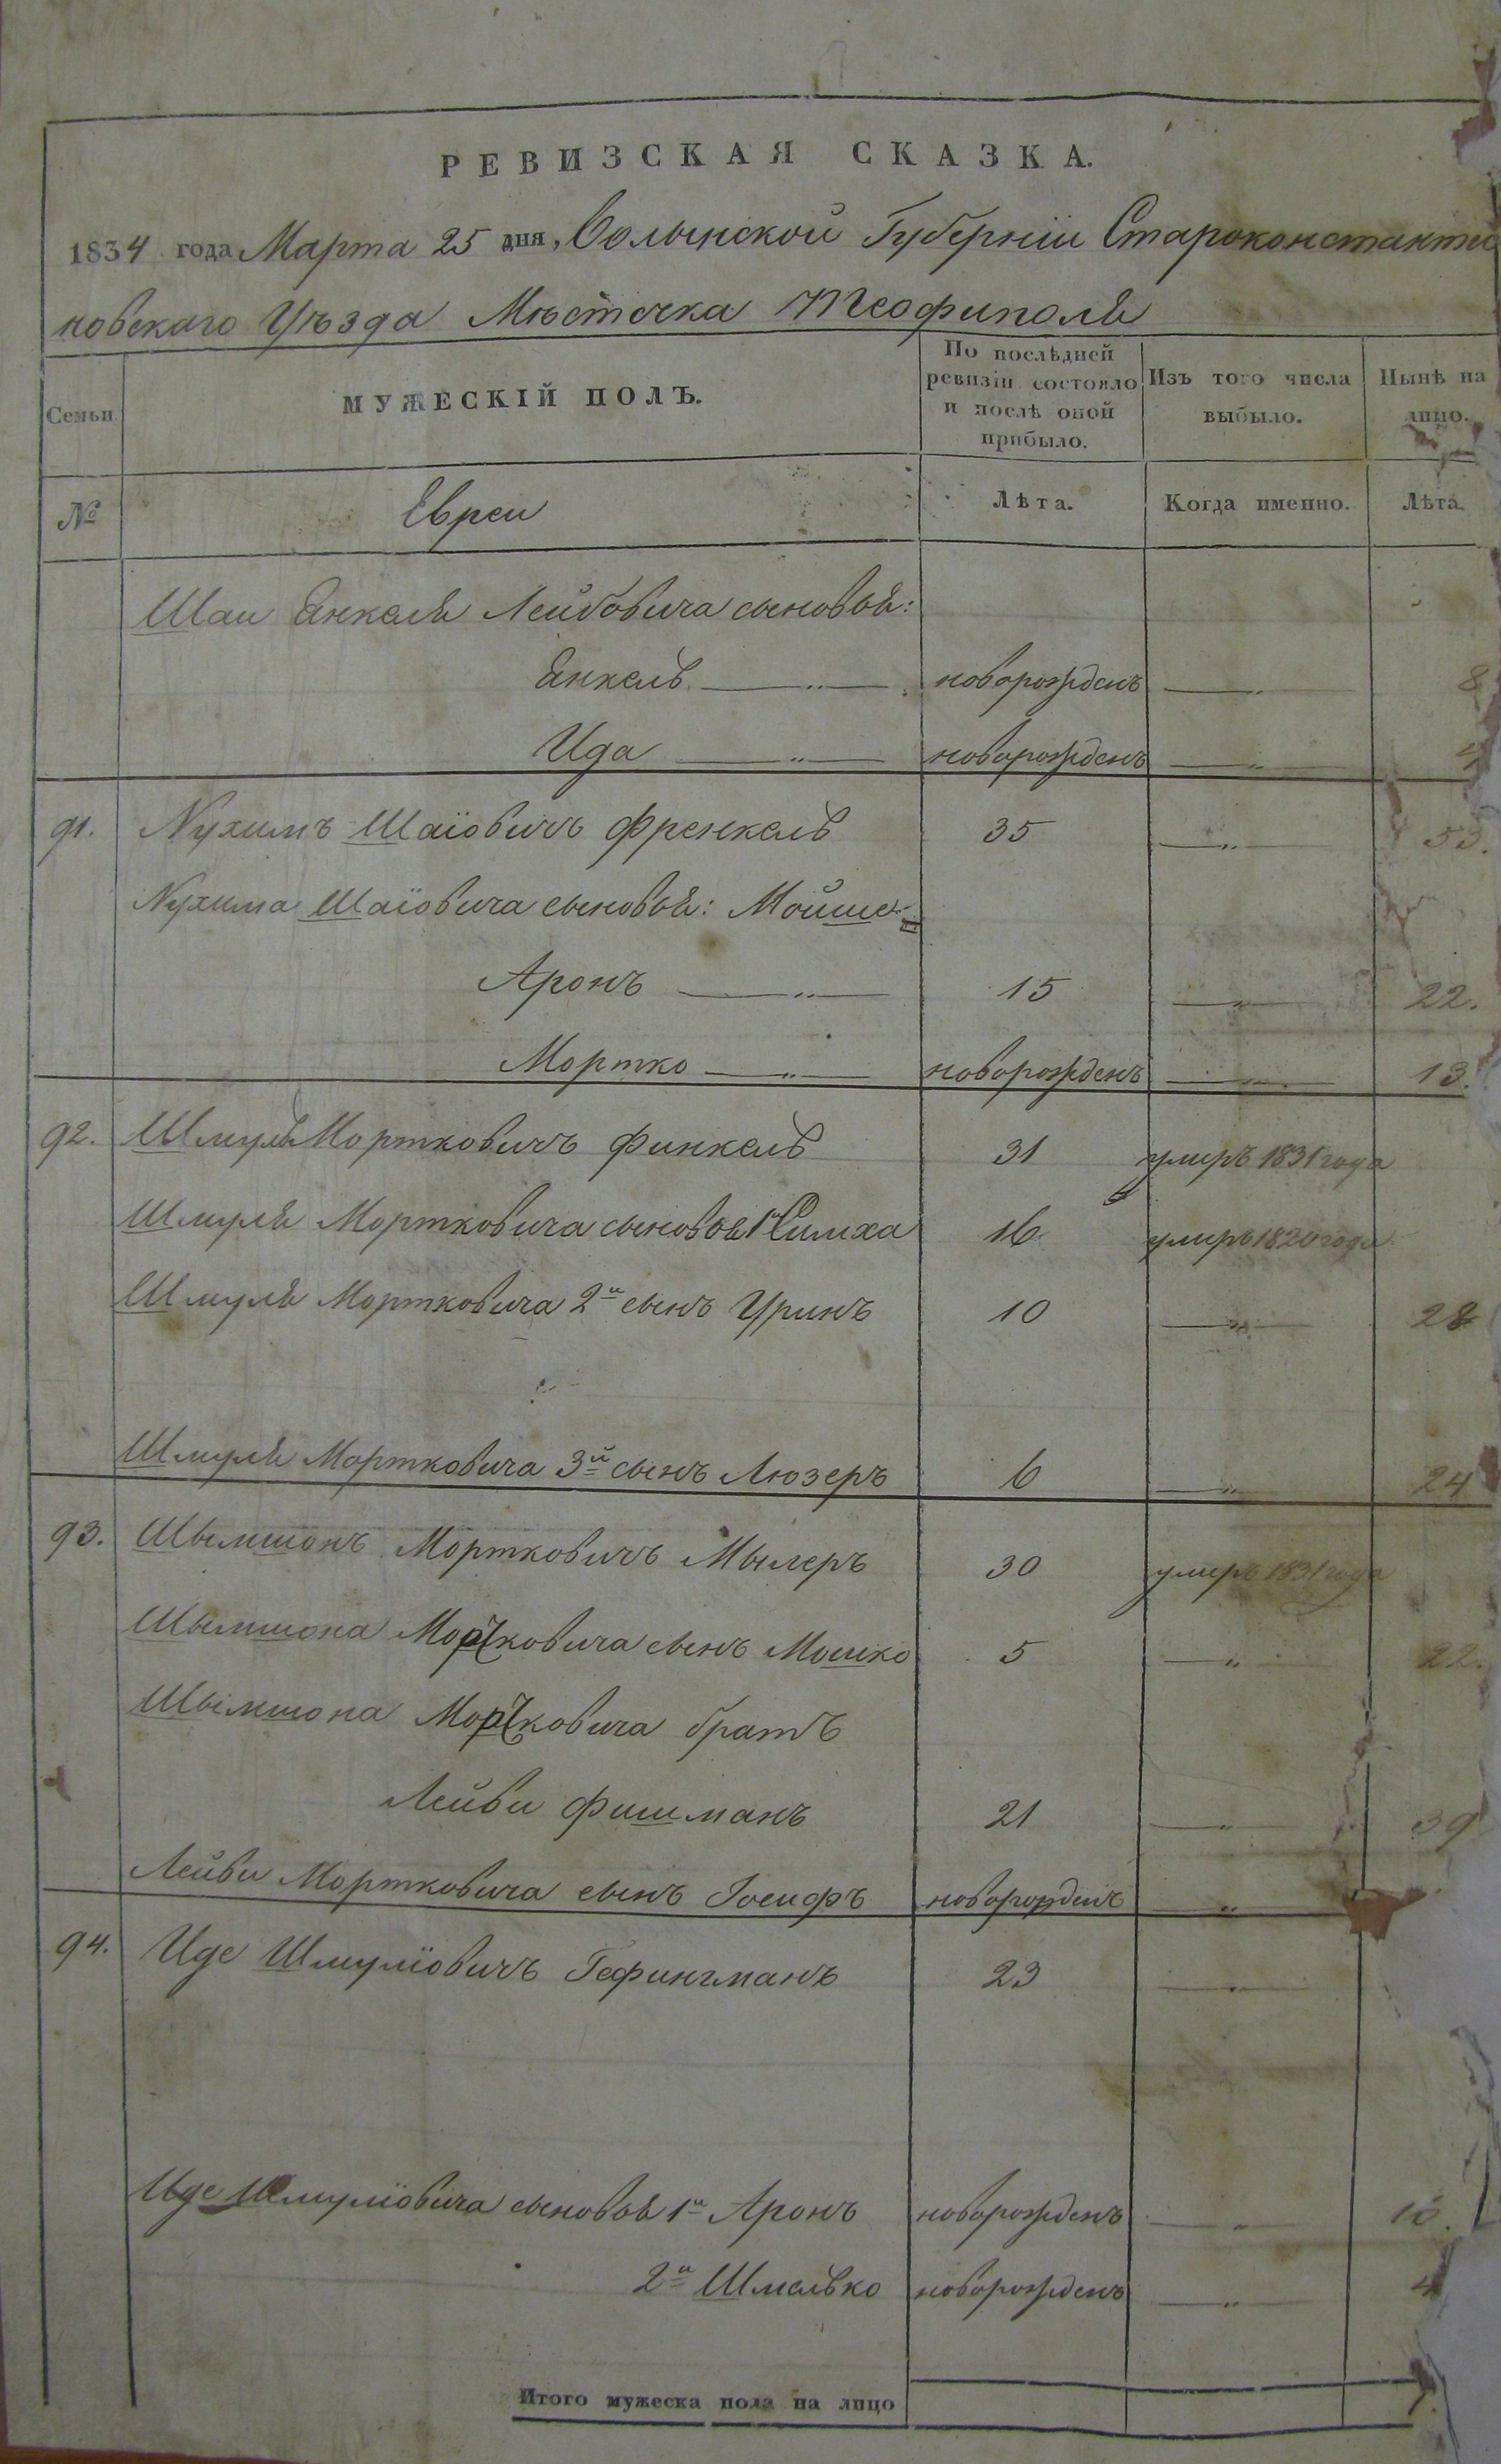 РЕВИЗСКАЯ СКАЗКА.
1834 года Марта 25 дня, Волынской Губерніи Староконстанти
новскаго Уѣзда Мѣстечка Теофиполя
Семьи
МУЖЕСКІЙ ПОЛЪ.
По послѣдней ревизіи состояло и послѣ оной прибыло.
Изъ того числа выбыло.
Нынѣ на лицо.
№ Евреи Лѣта. Когда именно. Лѣта.
Шаи Янкеля Лейбовича сыновья:
Янкель —„— новорожденъ —„— 8
Ида —„— новорожденъ —„—
91. Нухимъ Шаіовичъ Френкель 35 —„— 53.
Нухима Шаіовича сыновья: Мойше-
Аронъ —„— 15 —„— 22.
Мортко —„— новорожденъ —„— 13.
92. Шмуль Мортковичъ Финкель 31 умеръ 1831 года
Шмуля Мортковича сыновья 1й Симха 16 умеръ 1820 года
Шмуля Мортковича 2й сынъ Уринъ 10 —„— 28
Шмуля Мортковича 3й сынъ Люзеръ 6 —„— 24
93. Шымшонъ Мортковичъ Мылеръ 30 умеръ 1831 года
Шымшона Мортковича сынъ Мошко 5 —„— 22.
Шымшона Мортковича братъ
Лейви Фишманъ 21 —„— 39
Лейви Мортковича сынъ Іосифъ новорожденъ —„—
94. Иде Шмуліовичъ Гефингманъ 23 —„—
Иде Шмуліовича сыновья 1й Аронъ новорожденъ —„—
2й Шмелько новорожденъ —„— 4
Итого мужеска пола на лицо